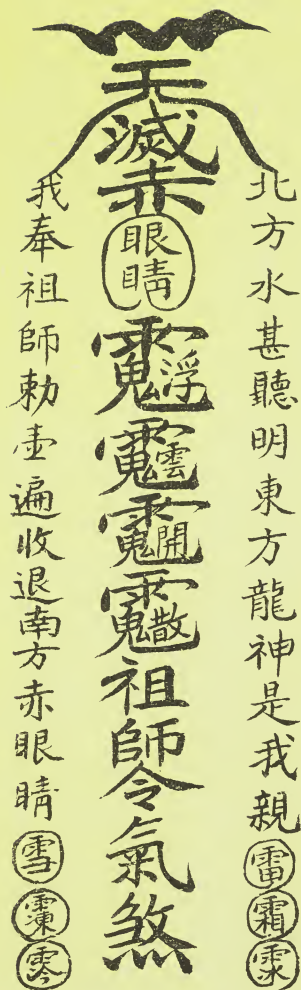 北方水甚聽明東方龍神是我親雷霜
天滅赤
眼睛
浮雲開散祖師令氣煞
我奉祖師勅遍收退南方赤眼睛雪